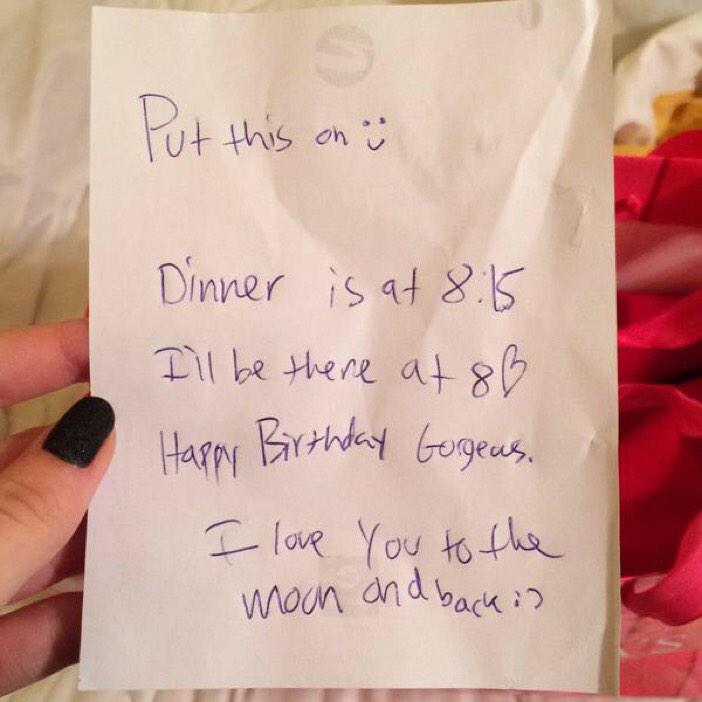 Put this on :)
Dinner is at 8:15
I'll be there at 8♡
Happy Birthday Gorgeous.
I love You to the
moon and back :)